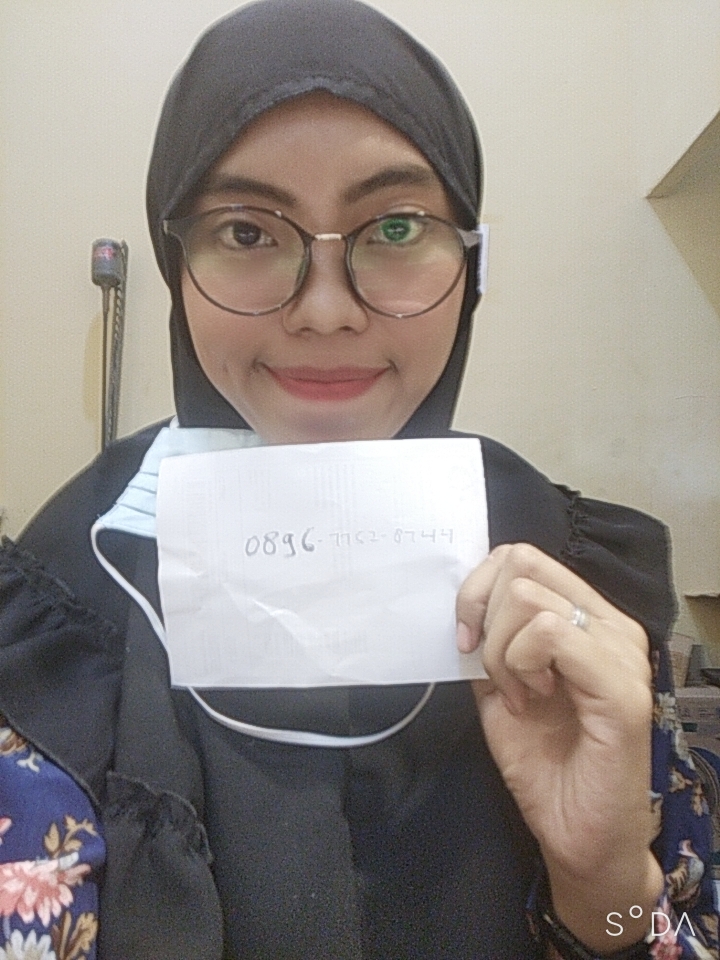 0896-7752-8744
SODA